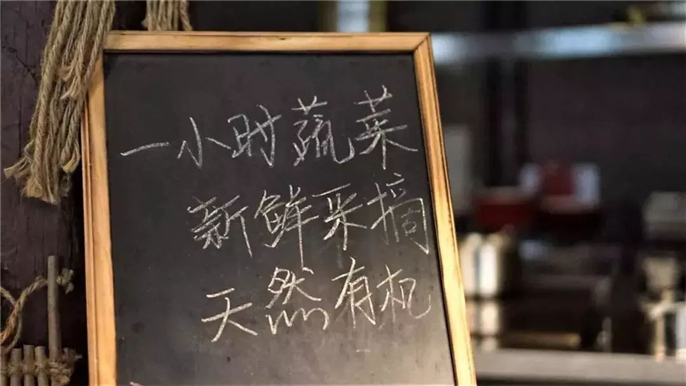 一小时蔬菜
新鲜采摘
天然有机